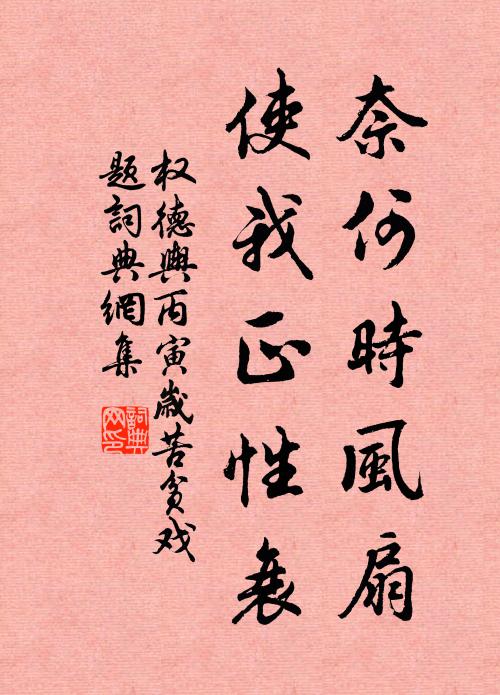 奈何時風扇
使我正性衰
权德輿丙寅歲苦貧戏
题詞典網集
詞典
网印